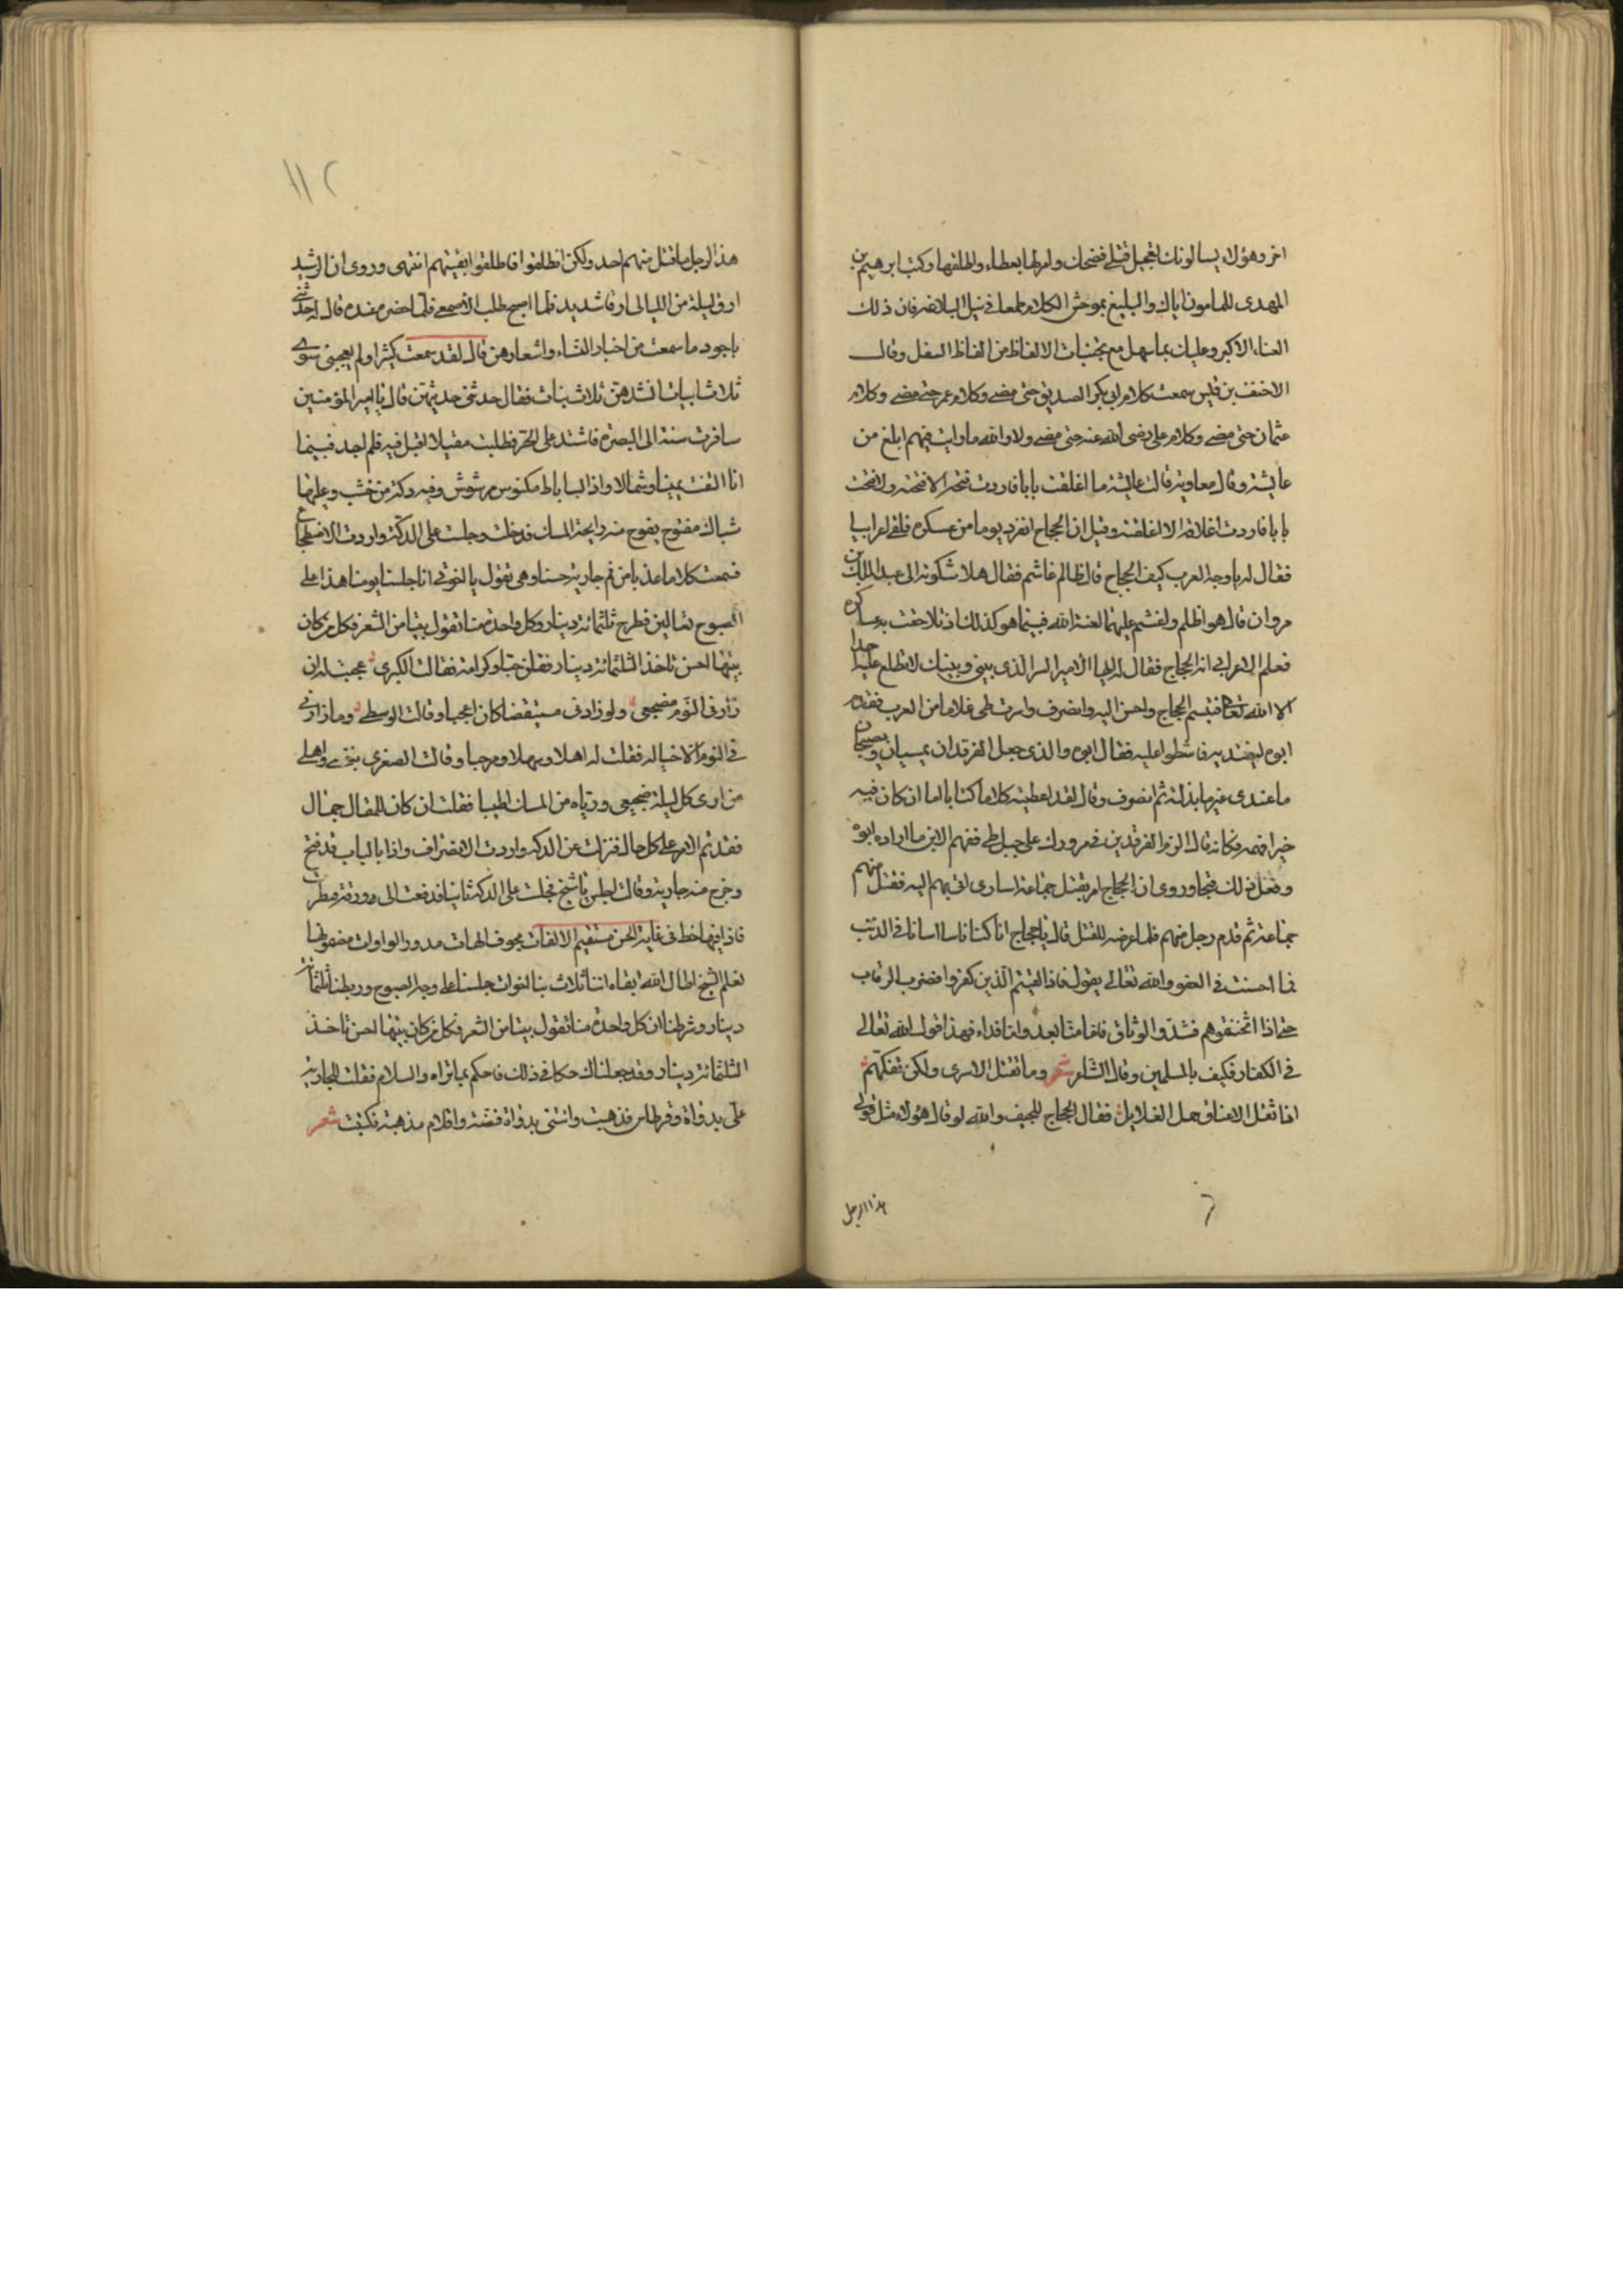 اخر وهؤلاء يسالونك تعجيل قتلي فضحك وامر لها بعطاء واطلقها وكتب ابرهيم بن
المهدى للمامون اياك والبليغ بموحش الكلام طمعا في نيل البلاغه فان ذلك
العناء الاكبر وعليك بما سهل مع تجنبك الالفاظ من الفاظ السفل وقال
الاحنف بن قيس سمعت كلام ابى بكر الصديق حتى مضى وكلام عمر حتى مضى وكلام
عثمان حتى مضى وكلام على رضى الله عنه حتى مضى ولا والله ما رايت فيهم ابلغ من
عايشة وقال معاوية قالت عايشة ما اغلقت بابا فاردت فتحه الا فتحته ولا فتحت
بابا فاردت اغلاقه الا اغلقته وقيل ان الحجاج انفرد يوما من عسكره فلقى اعرابيا
فقال له يا وجه العرب كيف الحجاج قال ظالم غاشم فقال هلا شكوته الى عبد الملك بن
مروان قال هو اظلم واغشم عليهما لعنة الله فبينما هو كذلك اذ تلاحقت به عساكره
فعلم الاعرابى انه الحجاج فقال له ايها الامير السر الذى بينى وبينك لا تطلع عليه احدا
الا الله تعالى فتبسم الحجاج واحسن اليه وانصرف واسرت طى غلاما من العرب فقدم
ابوه ليفتديه فاشطوا عليه فقال ابوه والذى جعل الفرقدان يمسيان ويصبحان
ما عندى غير ما بذلته ثم انصرف وقال لقد اعطيته كلاما كتابا اما ان كان فيه
خيرا فهمه فكانه قال الزم الفرقدين فى مرورك على جبل طى ففهم الابن ما اراده ابوه
وفعل ذلك فنجا وروى ان الحجاج امر بقتل جماعة اسارى اتى بهم اليه فقتل منهم
جماعة ثم قدم رجل منهم فلما عرضه للقتل قال يا حجاج انا كنا ناسا اسانا فى الذنب
فما احسنت فى العفو والله تعالى يقول فاذا لقيتم الذين كفروا فضرب الرقاب
حتى اذا اثخنتموهم فشدوا الوثاق فاما منا بعد واما فداء فهذا قول الله تعالى
فى الكفار فكيف بالمسلمين وقال الشاعر شعر وما نقتل الاسرى ولكن نفكهم
اذا ثقل الاعناق حمل الغلايل فقال الحجاج للجيف والله لو قال هؤلاء مثل قول
هذا الرجل
١١٢
هذا الرجل ما قتل منهم احد ولكن انطلقوا فاطلقوا بقيتهم انتهى وروى ان الرشيد
ارق ليلة من الليالى ارقا شديد فلما اصبح طلب الاصمعى فلما حضر عنده قال له حدثنى
باجود ما سمعت من اخبار النساء واشعارهن قال لقد سمعت كثيرا ولم يعجبنى سوى
ثلاث ابيات انشدهن ثلاث بنات فقال حدثنى حديثهن قال يا امير المؤمنين
سافرت سنة الى البصرة فاشتد على الحر فطلبت مقيلا اقيل فيه فلم اجد فبينما
انا التفت يمينا وشمالا واذا الساباط مكنوس مرشوش وفيه دكة من خشب وعليها
شباك مفتوح يفوح منه رايحة المسك فدخلت وجلست على الدكة واردت الاضطجاع
فسمعت كلاما عذبا من فم جارية حسنا وهى تقول يا اخوتى انا جلسنا يومنا هذا على
الصبوح تعالين نطرح ثلثمائة دينار وكل واحدة منا تقول بيتا من الشعر فكل من كان
بيتها احسن تاخذ الثلثمائة دينار فقلن حبا وكرامة فقالت الكبرى عجبت له ان
زار فى النوم مضجعى ولو زارنى مستيقضا كان اعجبا وقالت الوسطى وما زارنى
فى النوم الا خياله فقلت له اهلا وسهلا ومرحبا وقالت الصغرى بنفسى واهلى
من ارى كل ليلة ضجيعى ورياه من المسك اطيبا فقلت ان كان للمقال جمال
فقد تم الامر على كل حال فنزلت عن الدكة واردت الانصراف واذا بالباب قد فتح
وخرج منه جارية وقالت اجلس يا شيخ فجلست على الدكة ثانيا فدفعت الى ورقة مطرب
فاذا فيها خط فى غاية الحسن مستقيم الالفات مجوف الهات مدور الواوات مضمونها
نعلم الشيخ اطال الله بقاءه اننا ثلاث بنات اخوات جلسنا على وجه الصبوح وربطنا ثلثمائة
دينار وشرطنا ان كل واحدة منا تقول بيتا من الشعر فكل من كان بيتها احسن تاخذ
الثلثمائة دينار وقد جعلناك حكما فى ذلك فاحكم بما تراه والسلام فقلت للجارية
على بدواة وقرطاس فذهبت واتتنى بدواة فضة واقلام مذهبة فكتبت شعر